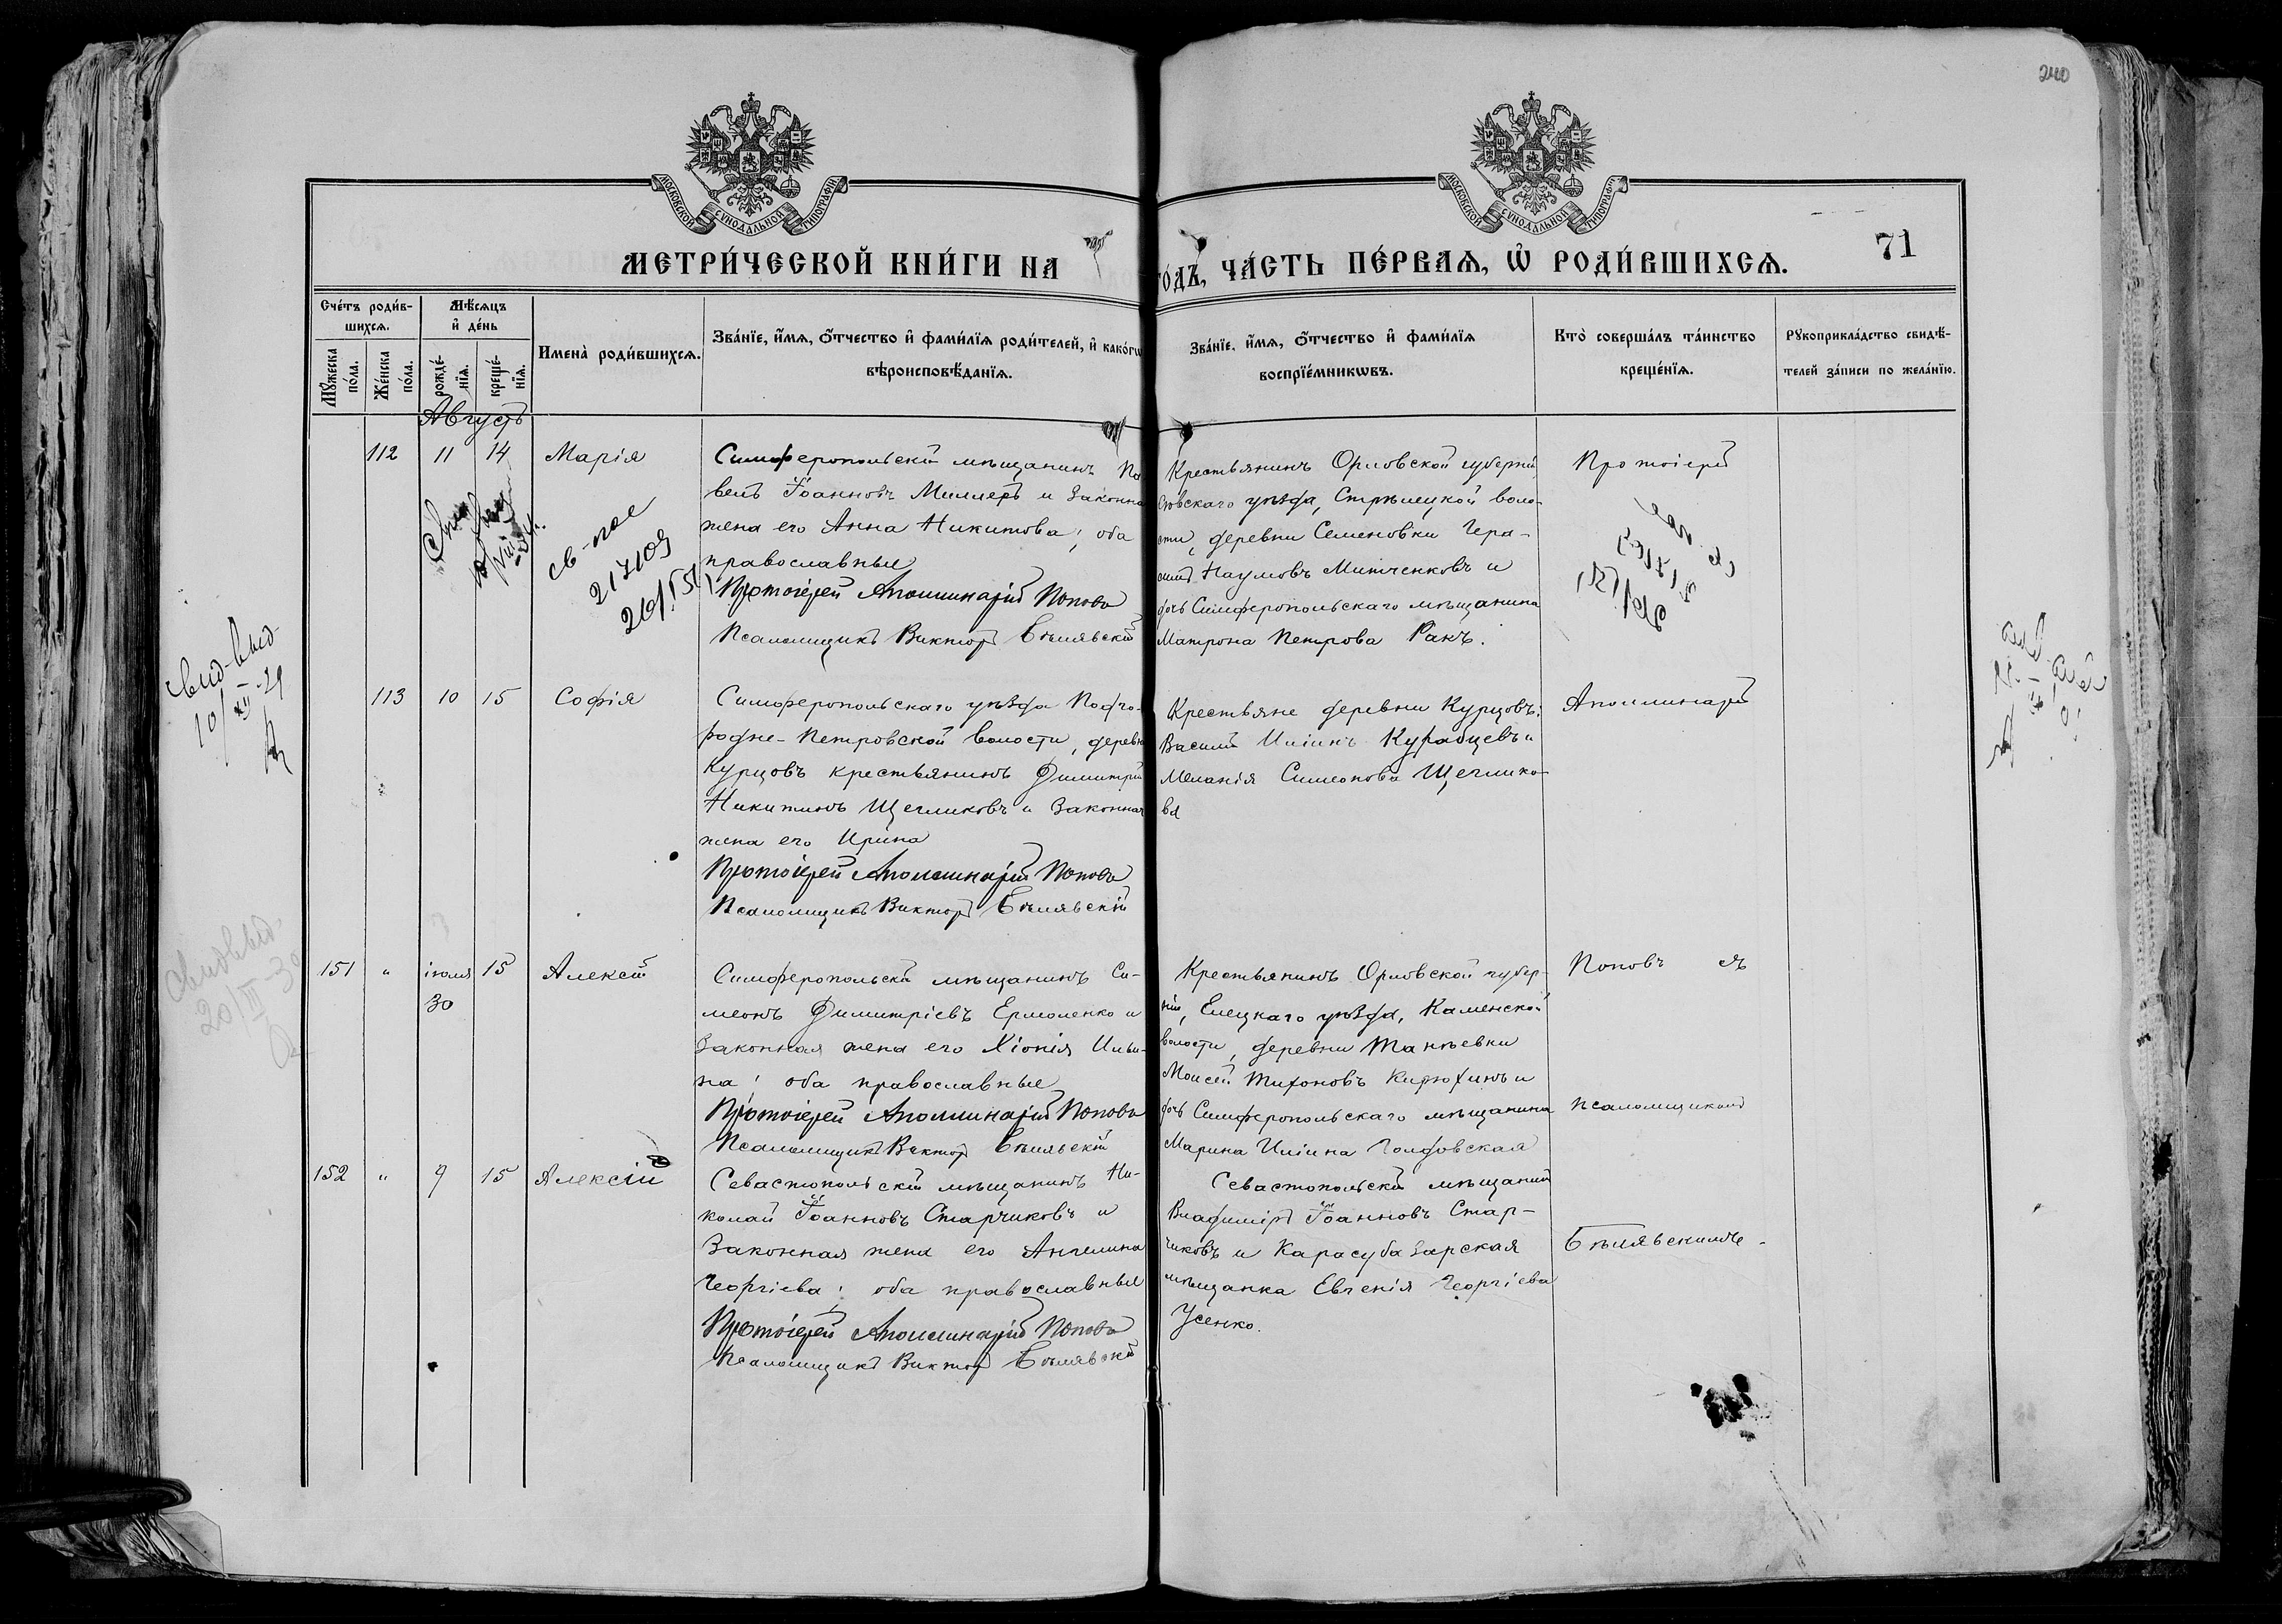 240
МОСКОВСКОЙ СѴНОДАЛЬНОЙ ТИПОГРАФІИ
МОСКОВСКОЙ СѴНОДАЛЬНОЙ ТИПОГРАФІИ
МЕТРИ́ЧЕСКОЙ КНИ́ГИ НА
ГО́ДЪ, ЧА́СТЬ ПЕ́РВАЯ, Ѡ РОДИ́ВШИХСЯ.
71
Сче́тъ роди́в-
шихся.
Мѣ́сяцъ
и҆ де́нь
Мꙋ́жеска
по́ла.
Же́нска
по́ла.
рожде́-
нїя.
креще́-
нїя.
И҆мена̀ роди́вшихся.
Зва́нїе, и҆́мя, ѻ҆́тчество и҆ фами́лїя роди́телей, и҆ како́гѡ
вѣроисповѣ́данїя.
Зва́нїе, и҆́мя, ѻ҆́тчество и҆ фами́лїя
воспрїе́мникѡвъ.
Кто̀ соверша́лъ та́инство
креще́нїя.
Рꙋкоприкла́дство свидѣ́-
телей за́писи по жела́нїю.
Августъ
112 11 14 Марія
Симферопольскій мѣщанинъ Па-
велъ Іоанновъ Миллеръ и законная
жена его Анна Никитова; оба
православные
Протоіерей Аполлинарій Поповъ
Псаломщикъ Викторъ Бѣлявскій
Крестьянинъ Орловской губерніи
уѣзда, Стрѣлецкой воло-
сти, деревни Семеновки Гера-
симъ Наумовъ Митченковъ и
дочь Симферопольскаго мѣщанина
Матрона Петрова Ракъ.
Протоіерей
св-пое
217109
Свид-выд
10/XII-29
113 10 15 Софія
Симферопольскаго уѣзда Подго-
родне-Петровской волости, деревни
Курцовъ крестьянинъ Димитрій
Никитинъ Щегликовъ и законная
жена его Ирина
Протоіерей Аполлинарій Поповъ
Псаломщикъ Викторъ Бѣлявскій
Крестьяне деревни Курцовъ:
Василій Иліинъ Курабцевъ и
Меланія Симеонова Щеглико-
ва
Аполлинарій
20/III-30
151 " іюля 15 Алексій
30
Симферопольскій мѣщанинъ Си-
меонъ Димитріевъ Ермоленко и
законная жена его Хіонія Ильи-
на; оба православные
Протоіерей Аполлинарій Поповъ
Псаломщикъ Викторъ Бѣлявскій
Крестьянинъ Орловской губер-
ніи, Елецкаго уѣзда, Каменской
волости, деревни Танѣевки
Моисей Тихоновъ Кирюхинъ и
дочь Симферопольскаго мѣщанина
Марина Иліина Голдовская
Поповъ съ
псаломщикомъ
152 " 9 15 Алексій
Севастопольскій мѣщанинъ Ни-
колай Іоанновъ Старчиковъ и
законная жена его Ангелина
Георгіева; оба православные
Протоіерей Аполлинарій Поповъ
Псаломщикъ Викторъ Бѣлявскій
Севастопольскій мѣщанинъ
Владиміръ Іоанновъ Стар-
чиковъ и Карасубазарская
мѣщанка Евгенія Георгіева
Усенко.
Бѣлявскимъ.